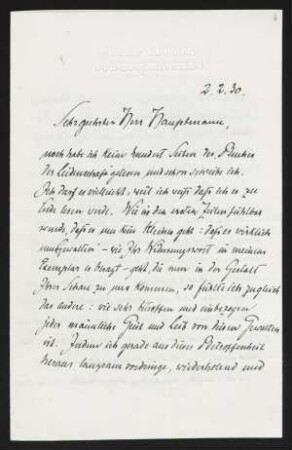 2. 2. 30.
Sehr geehrter Herr Hauptmann,
noch habe ich keine hundert Seiten des Buches
der Leidenschaft gelesen und schon schreibe ich.
Ich darf es vielleicht, weil ich weiß daß ich es zu
Ende lesen werde. Wie in den ersten Zeilen fühlbar
wurde, daß es um kein Kleines geht: daß es wirklich
"– wie Ihr Widmungswort in meinem
Exemplar es besagt – geht, die nun in der Gestalt
Ihrer Schau zu uns kommen, so fühlte ich zugleich
das andere: wie sehr betroffen und einbezogen
jeder männliche Geist und Leib von diesen Gewalten
ist. Indem ich gerade aus dieser Betroffenheit
heraus langsam vordringe, wiederholend und